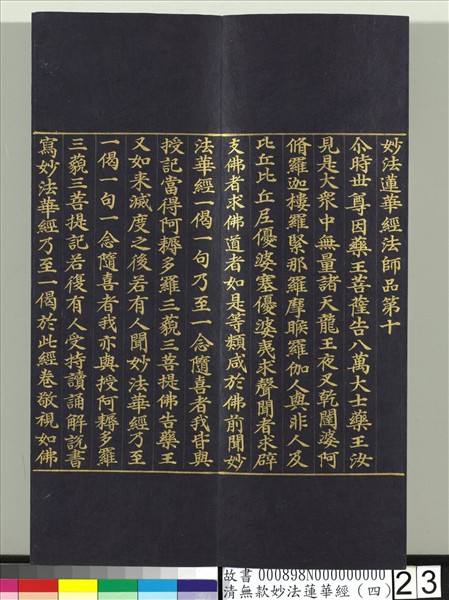 妙法蓮華經法師品第十
尒時世尊因藥王菩薩告八萬大士藥王汝
見是大衆中無量諸天龍王夜叉乾闥婆阿
脩羅迦樓羅緊那羅摩睺羅伽人與非人及
比丘比丘尼優婆塞優婆夷求聲聞者求辟
支佛者求佛道者如是等類咸於佛前聞妙
法華經一偈一句乃至一念隨喜者我皆與
授記當得阿耨多羅三藐三菩提佛告藥王
又如来滅度之後若有人聞妙法華經乃至
一偈一句一念隨喜者我亦與授阿耨多羅
三藐三菩提記若復有人受持讀誦解說書
寫妙法華經乃至一偈於此經卷敬視如佛
故書 000898N000000000
清無款妙法蓮華經（四）
23